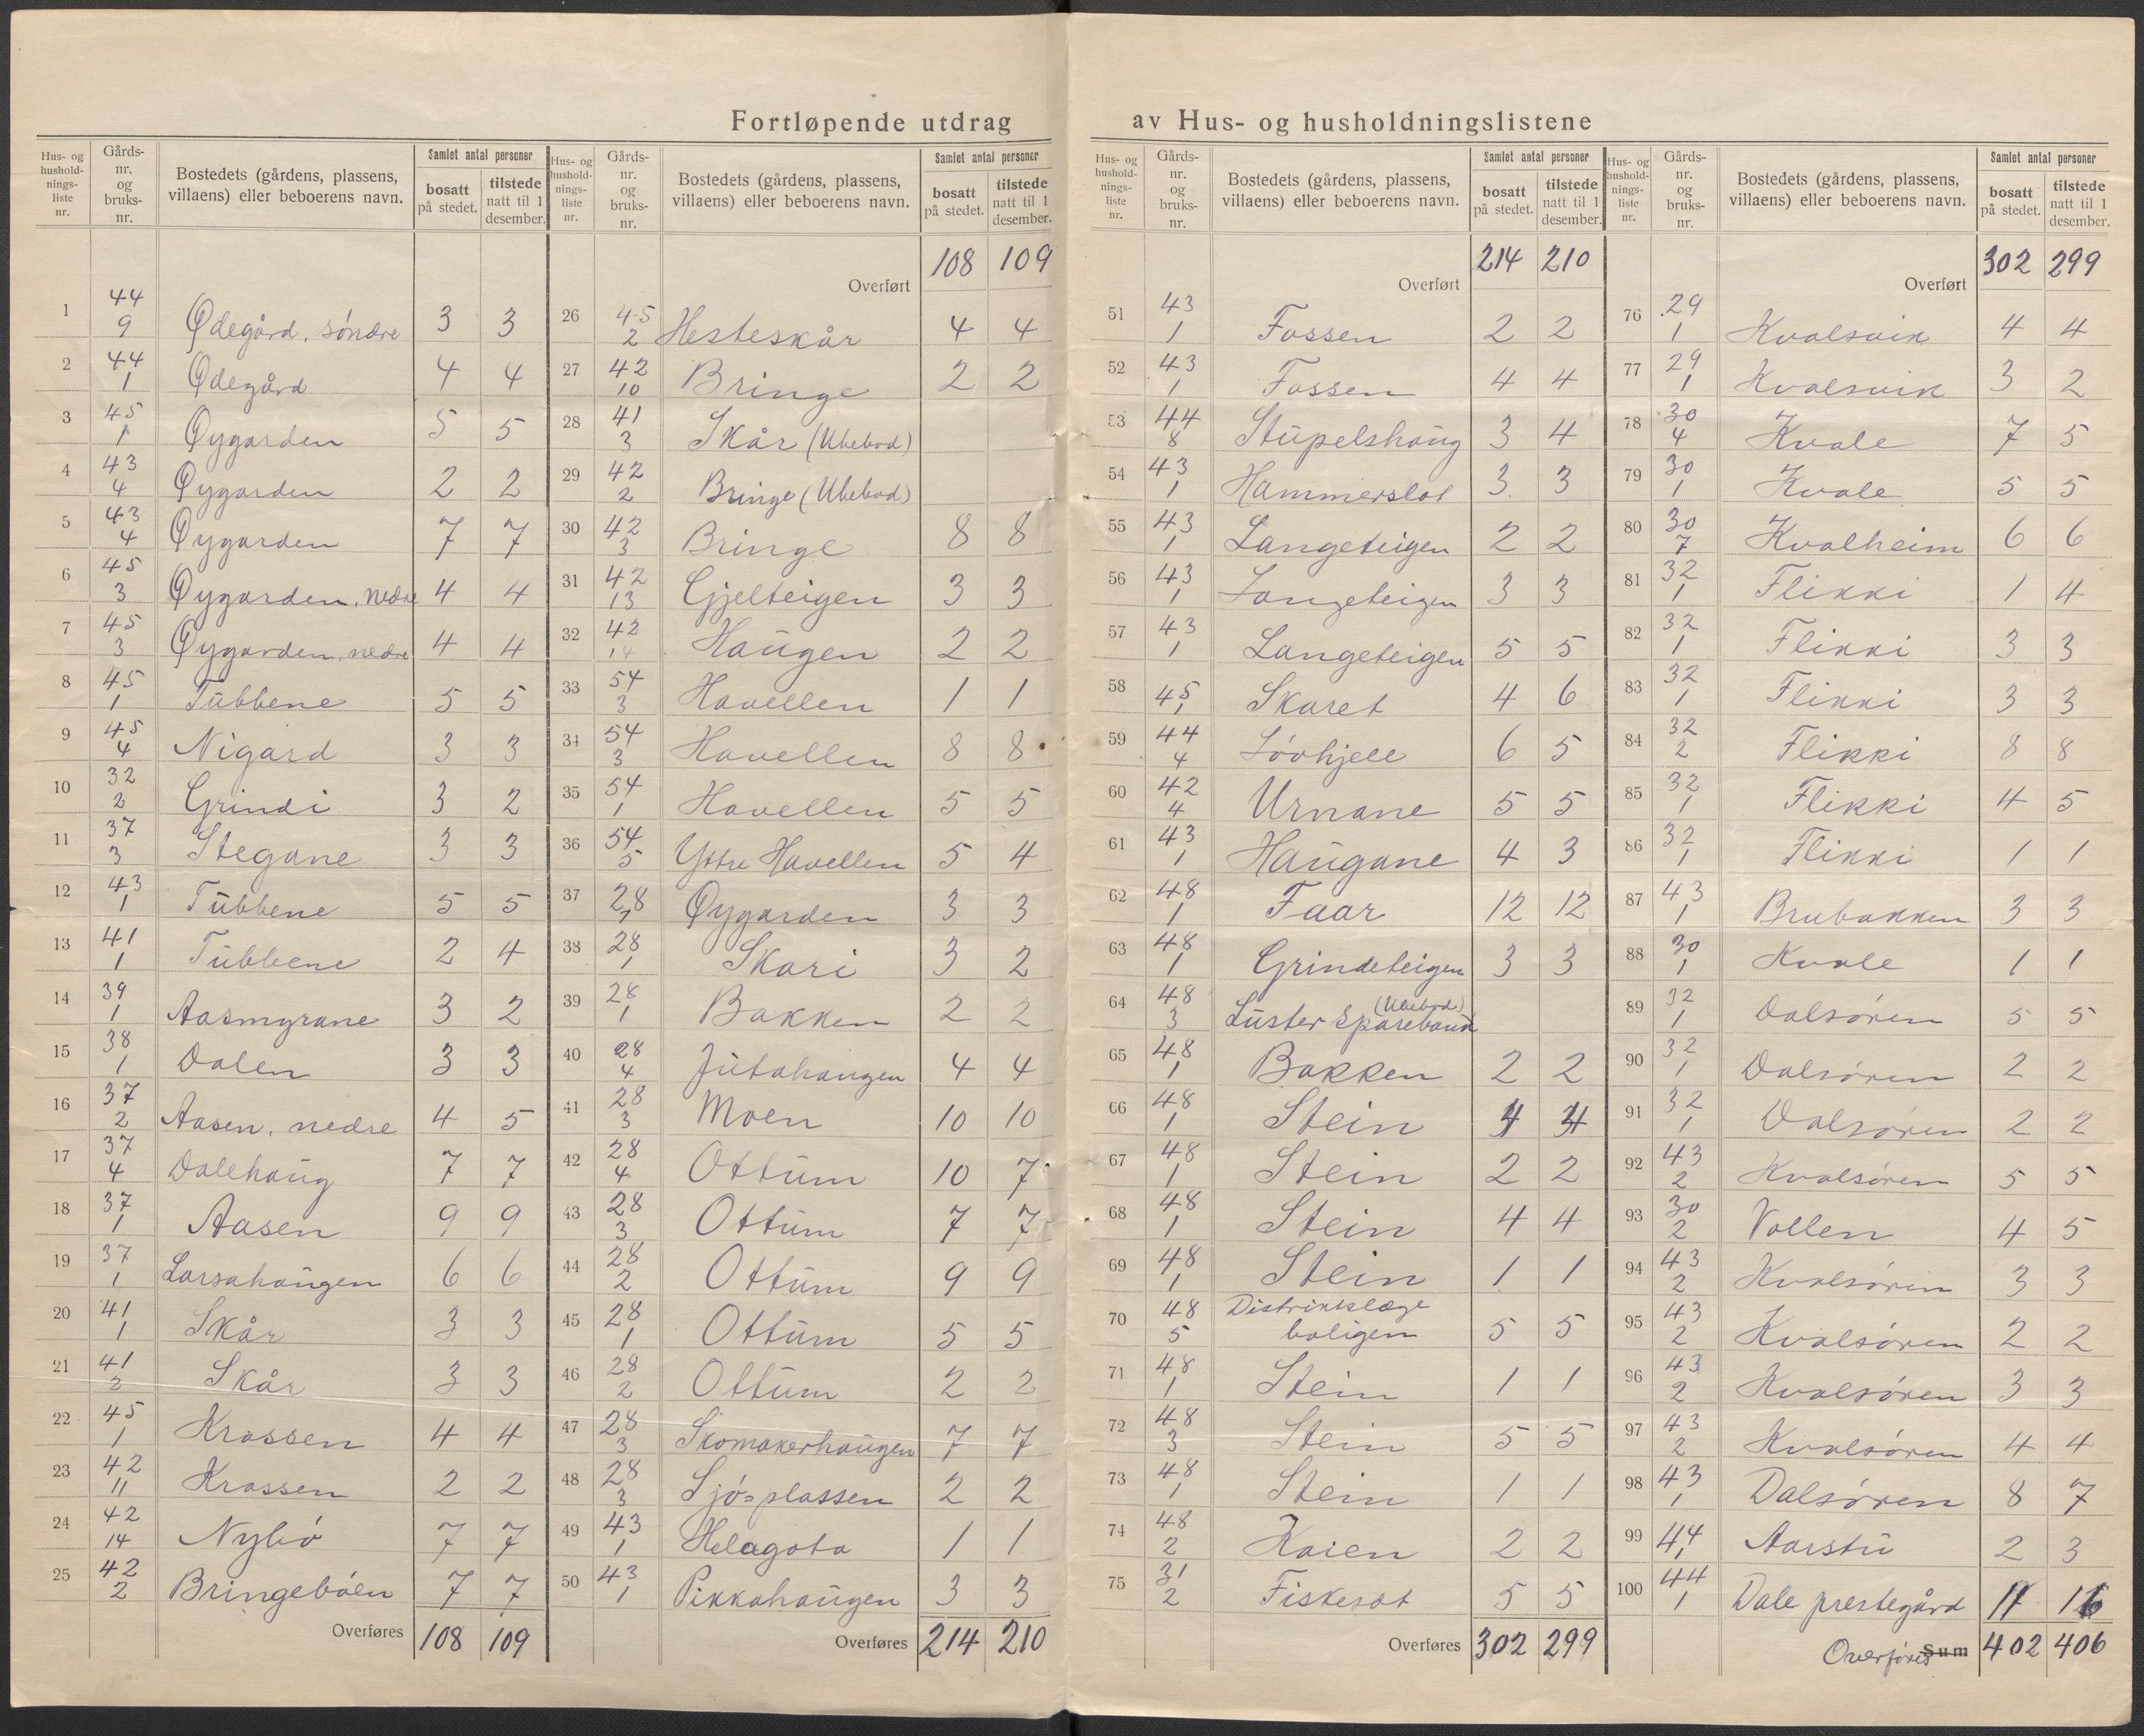 Fortløpende utdrag av Hus- og husholdningslistene
Hus- og husholdnings-liste nr. | Gårds-nr. og bruks-nr. | Bostedets (gårdens, plassens, villaens) eller beboerens navn. | Samlet antal personer bosatt på stedet. | tilstede natt til 1 desember.
1 44/9 Ødegård, søndre 3 3
2 44/1 Ødegård 4 4
3 45/1 Øygarden 5 5
4 43/4 Øygarden 2 2
5 43/4 Øygarden 7 7
6 45/3 Øygarden, nedre 4 4
7 45/3 Øygarden, nedre 4 4
8 45/1 Tubbene 5 5
9 45/4 Nigard 3 3
10 32/2 Grindi 3 2
11 37/3 Stegane 3 3
12 43/1 Tubbene 5 5
13 41/1 Tubbene 2 4
14 39/1 Aasmyrane 3 2
15 38/1 Dalen 3 3
16 37/2 Aasen, nedre 4 5
17 37/4 Dalehaug 7 7
18 37/1 Aasen 9 9
19 37/1 Larsahaugen 6 6
20 41/1 Skår 3 3
21 41/2 Skår 3 3
22 45/1 Krossen 4 4
23 42/11 Krossen 2 2
24 42/14 Nybö 7 7
25 42/2 Bringeböen 7 7
Overføres 108 109
Hus- og husholdnings-liste nr. | Gårds-nr. og bruks-nr. | Bostedets (gårdens, plassens, villaens) eller beboerens navn. | Samlet antal personer bosatt på stedet. | tilstede natt til 1 desember.
Overført 108 109
26 45/2 Hesteskår 4 4
27 42/10 Bringe 2 2
28 41/3 Skår (Ubebod)
29 42/2 Bringe (Ubebod)
30 42/3 Bringe 8 8
31 42/13 Gjelteigen 3 3
32 42/14 Haugen 2 2
33 54/3 Havellen 1 1
34 54/3 Havellen 8 8
35 54/1 Havellen 5 5
36 54/5 Ytre Havellen 5 4
37 28/1 Øygarden 3 3
38 28/1 Skari 3 2
39 28/1 Bakken 2 2
40 28/4 Jutahaugen 4 4
41 28/3 Moen 10 10
42 28/4 Ottum 10 7
43 28/3 Ottum 7 7
44 28/2 Ottum 9 9
45 28/1 Ottum 5 5
46 28/2 Ottum 2 2
47 28/3 Skomakerhaugen 7 7
48 28/3 Sjö=plassen 2 2
49 43/1 Helagota 1 1
50 43/1 Pikkahaugen 3 3
Overføres 214 210
Hus- og husholdnings-liste nr. | Gårds-nr. og bruks-nr. | Bostedets (gårdens, plassens, villaens) eller beboerens navn. | Samlet antal personer bosatt på stedet. | tilstede natt til 1 desember.
Overført 214 210
51 43/1 Fossen 2 2
52 43/1 Fossen 4 4
53 44/8 Stupelshaug 3 4
54 43/1 Hammerslot 3 3
55 43/1 Langeteigen 2 2
56 43/1 Langeteigen 3 3
57 43/1 Langeteigen 5 5
58 45/1 Skaret 4 6
59 44/4 Lövhjell 6 5
60 42/4 Urnane 5 5
61 43/1 Haugane 4 3
62 48/1 Faar 12 12
63 48/1 Grindeteigen 3 3
64 48/3 Luster Sparebank (Ubebod)
65 48/1 Bakken 2 2
66 48/1 Stein 4 4
67 48/1 Stein 2 2
68 48/1 Stein 4 4
69 48/1 Stein 1 1
70 48/5 Distriktslæge boligen 5 5
71 48/1 Stein 1 1
72 48/3 Stein 5 5
73 48/1 Stein 1 1
74 48/2 Kaien 2 2
75 31/2 Fiskesæt 5 5
Overføres 302 299
Hus- og husholdnings-liste nr. | Gårds-nr. og bruks-nr. | Bostedets (gårdens, plassens, villaens) eller beboerens navn. | Samlet antal personer bosatt på stedet. | tilstede natt til 1 desember.
Overført 302 299
76 29/1 Kvalsvik 4 4
77 29/1 Kvalsvik 3 2
78 30/4 Kvale 7 5
79 30/1 Kvale 5 5
80 30/7 Kvalheim 6 6
81 32/1 Flikki 1 4
82 32/1 Flikki 3 3
83 32/1 Flikki 3 3
84 32/2 Flikki 8 8
85 32/1 Flikki 4 5
86 32/1 Flikki 1 1
87 43/1 Brubakken 3 3
88 30/1 Kvale 1 1
89 32/1 Dalsøren 5 5
90 32/1 Dalsøren 2 2
91 32/1 Dalsøren 2 2
92 43/2 Kvalsøren 5 5
93 30/2 Vollen 4 5
94 43/2 Kvalsøren 3 3
95 43/2 Kvalsøren 2 2
96 43/2 Kvalsøren 3 3
97 43/2 Kvalsøren 4 4
98 43/1 Dalsøren 8 7
99 44/1 Aarstu 2 3
100 44/1 Dale prestegård 11 16
Overføres Sum 402 406